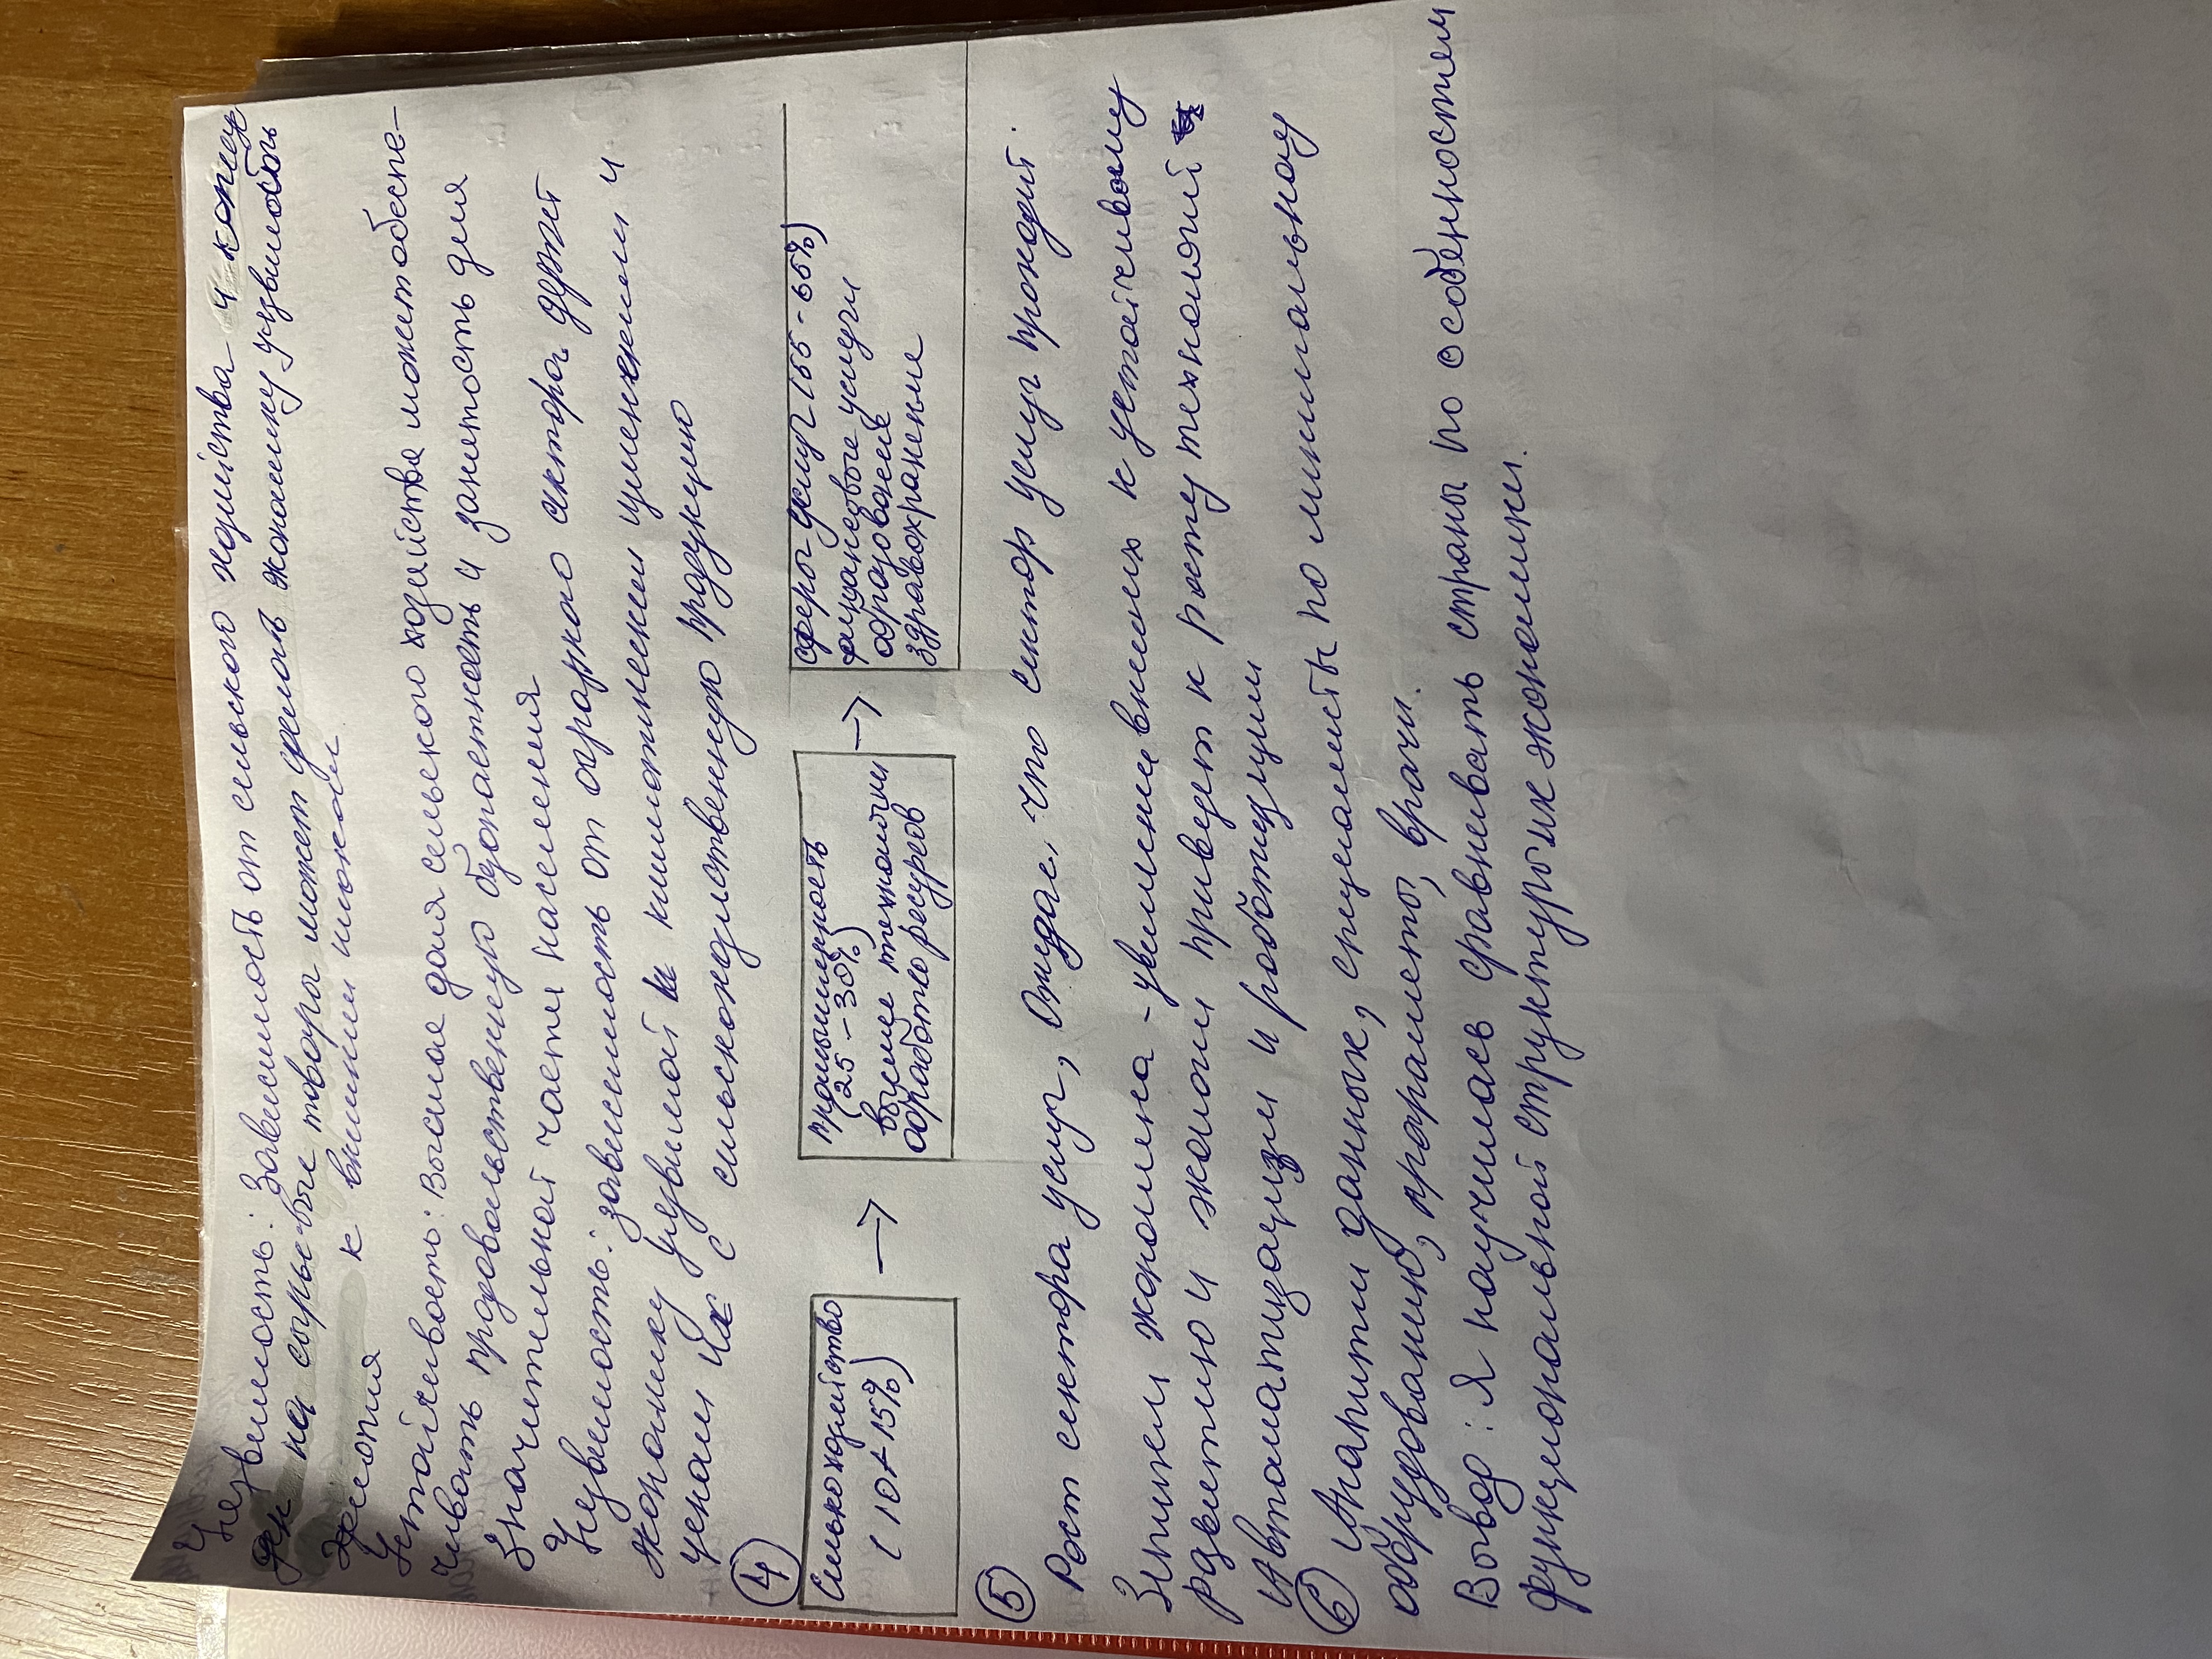 Уязвимость: Зависимость от сельского хозяйства и
на сырьевые товары может делать экономику уязвимость
к внешним шокам
Устойчивость: Высокая доля сельского хозяйства может обеспе-
чивать продовольственную безопасность и занятость для
значительной части населения
Уязвимость: зависимость от аграрного сектора держит
экономику уязвимой к климатическим изменениям и
ценам на с сельскохозяйственную продукцию
④
Сельскохозяйство
(10-15%)
→
промышленность
(25-30%)
высшие технологии
обработка ресурсов
→
сфера услуг (55-65%)
финансовые услуги
образование
здравохранение
⑤
Рост сектора услуг, Ожидае. что сектор услуг проходит.
Зеленая экономика - увеличение внимания к устойчивому
развитию и экологии приведет к росту технологий
Автоматизации и роботизации
⑥ Аналитики данных, специалисты по минимальному
оборудованию, програмисты, врачи.
Вывод: Я научилась сравнивать страны по особенностям
функциональной структуры их экономики.